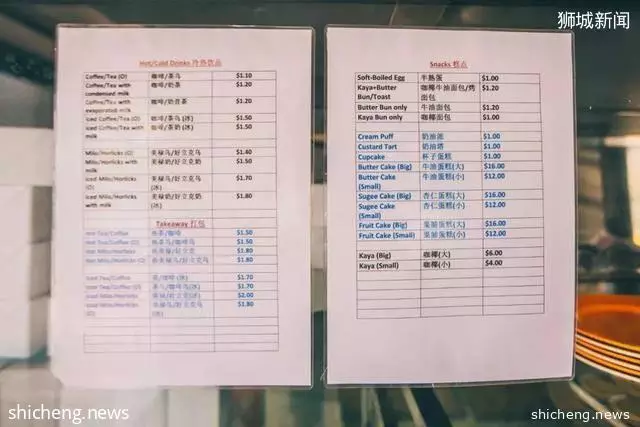 狮城新闻
Hot/Cold Drinks 冷热饮品
Coffee/Tea (O) 咖啡/茶乌 $1.10
Coffee/Tea with 咖啡/奶茶 $1.20
condensed milk
Coffee/Tea with 咖啡/奶昔茶 $1.20
evaporated milk
Iced Coffee/Tea (O) 咖啡/茶乌 (冰) $1.50
Iced Coffee/Tea with 咖啡/茶奶 (冰) $1.50
milk
Milo/Horlicks (O) 美禄乌/好立克乌 $1.40
Milo/Horlicks with 美禄奶/好立克奶 $1.50
milk
Iced Milo/Horlicks 美禄乌/好立克乌 $1.70
(O) (冰)
Iced Milo/Horlicks 美禄奶/好立克奶 $1.80
with milk (冰)
Takeaway 打包
Hot Tea/Coffee 热茶/咖啡 $1.50
Hot Tea/Coffee (O) 热茶/咖啡乌 $1.50
Hot Milo/Horlicks $1.80
Hot Milo/Horlicks $1.80
(O)
Iced Tea/Coffee 茶/咖啡 (冰) $1.70
Iced Tea/Coffee (O) 茶乌/咖啡乌(冰) $1.70
Iced Milo/Horlicks 美禄/好立克(冰) $2.00
Iced Milo/Horlicks 美禄乌/好立克乌 $1.80
(O) (冰)
Snacks 糕点
Soft-Boiled Egg 半熟蛋 $1.00
Kaya+Butter 咖椰牛油面包/烤 $1.20
Bun/Toast 面包
Butter Bun only 牛油面包 $1.20
Kaya Bun only 咖椰面包 $1.00
Cream Puff 奶油派 $1.00
Custard Tart 奶油塔 $1.00
Cupcake 杯子蛋糕 $1.00
Butter Cake (Big) 牛油蛋糕(大) $16.00
Butter Cake 牛油蛋糕(小) $12.00
(Small)
Sugee Cake (Big) 杏仁蛋糕(大) $16.00
Sugee Cake 杏仁蛋糕(小) $12.00
(Small)
Fruit Cake (Big) 果脯蛋糕(大) $16.00
Fruit Cake (Small) 果脯蛋糕(小) $12.00
Kaya (Big) 咖椰(大) $6.00
Kaya (Small) 咖椰(小) $4.00
shicheng.news
shicheng.news